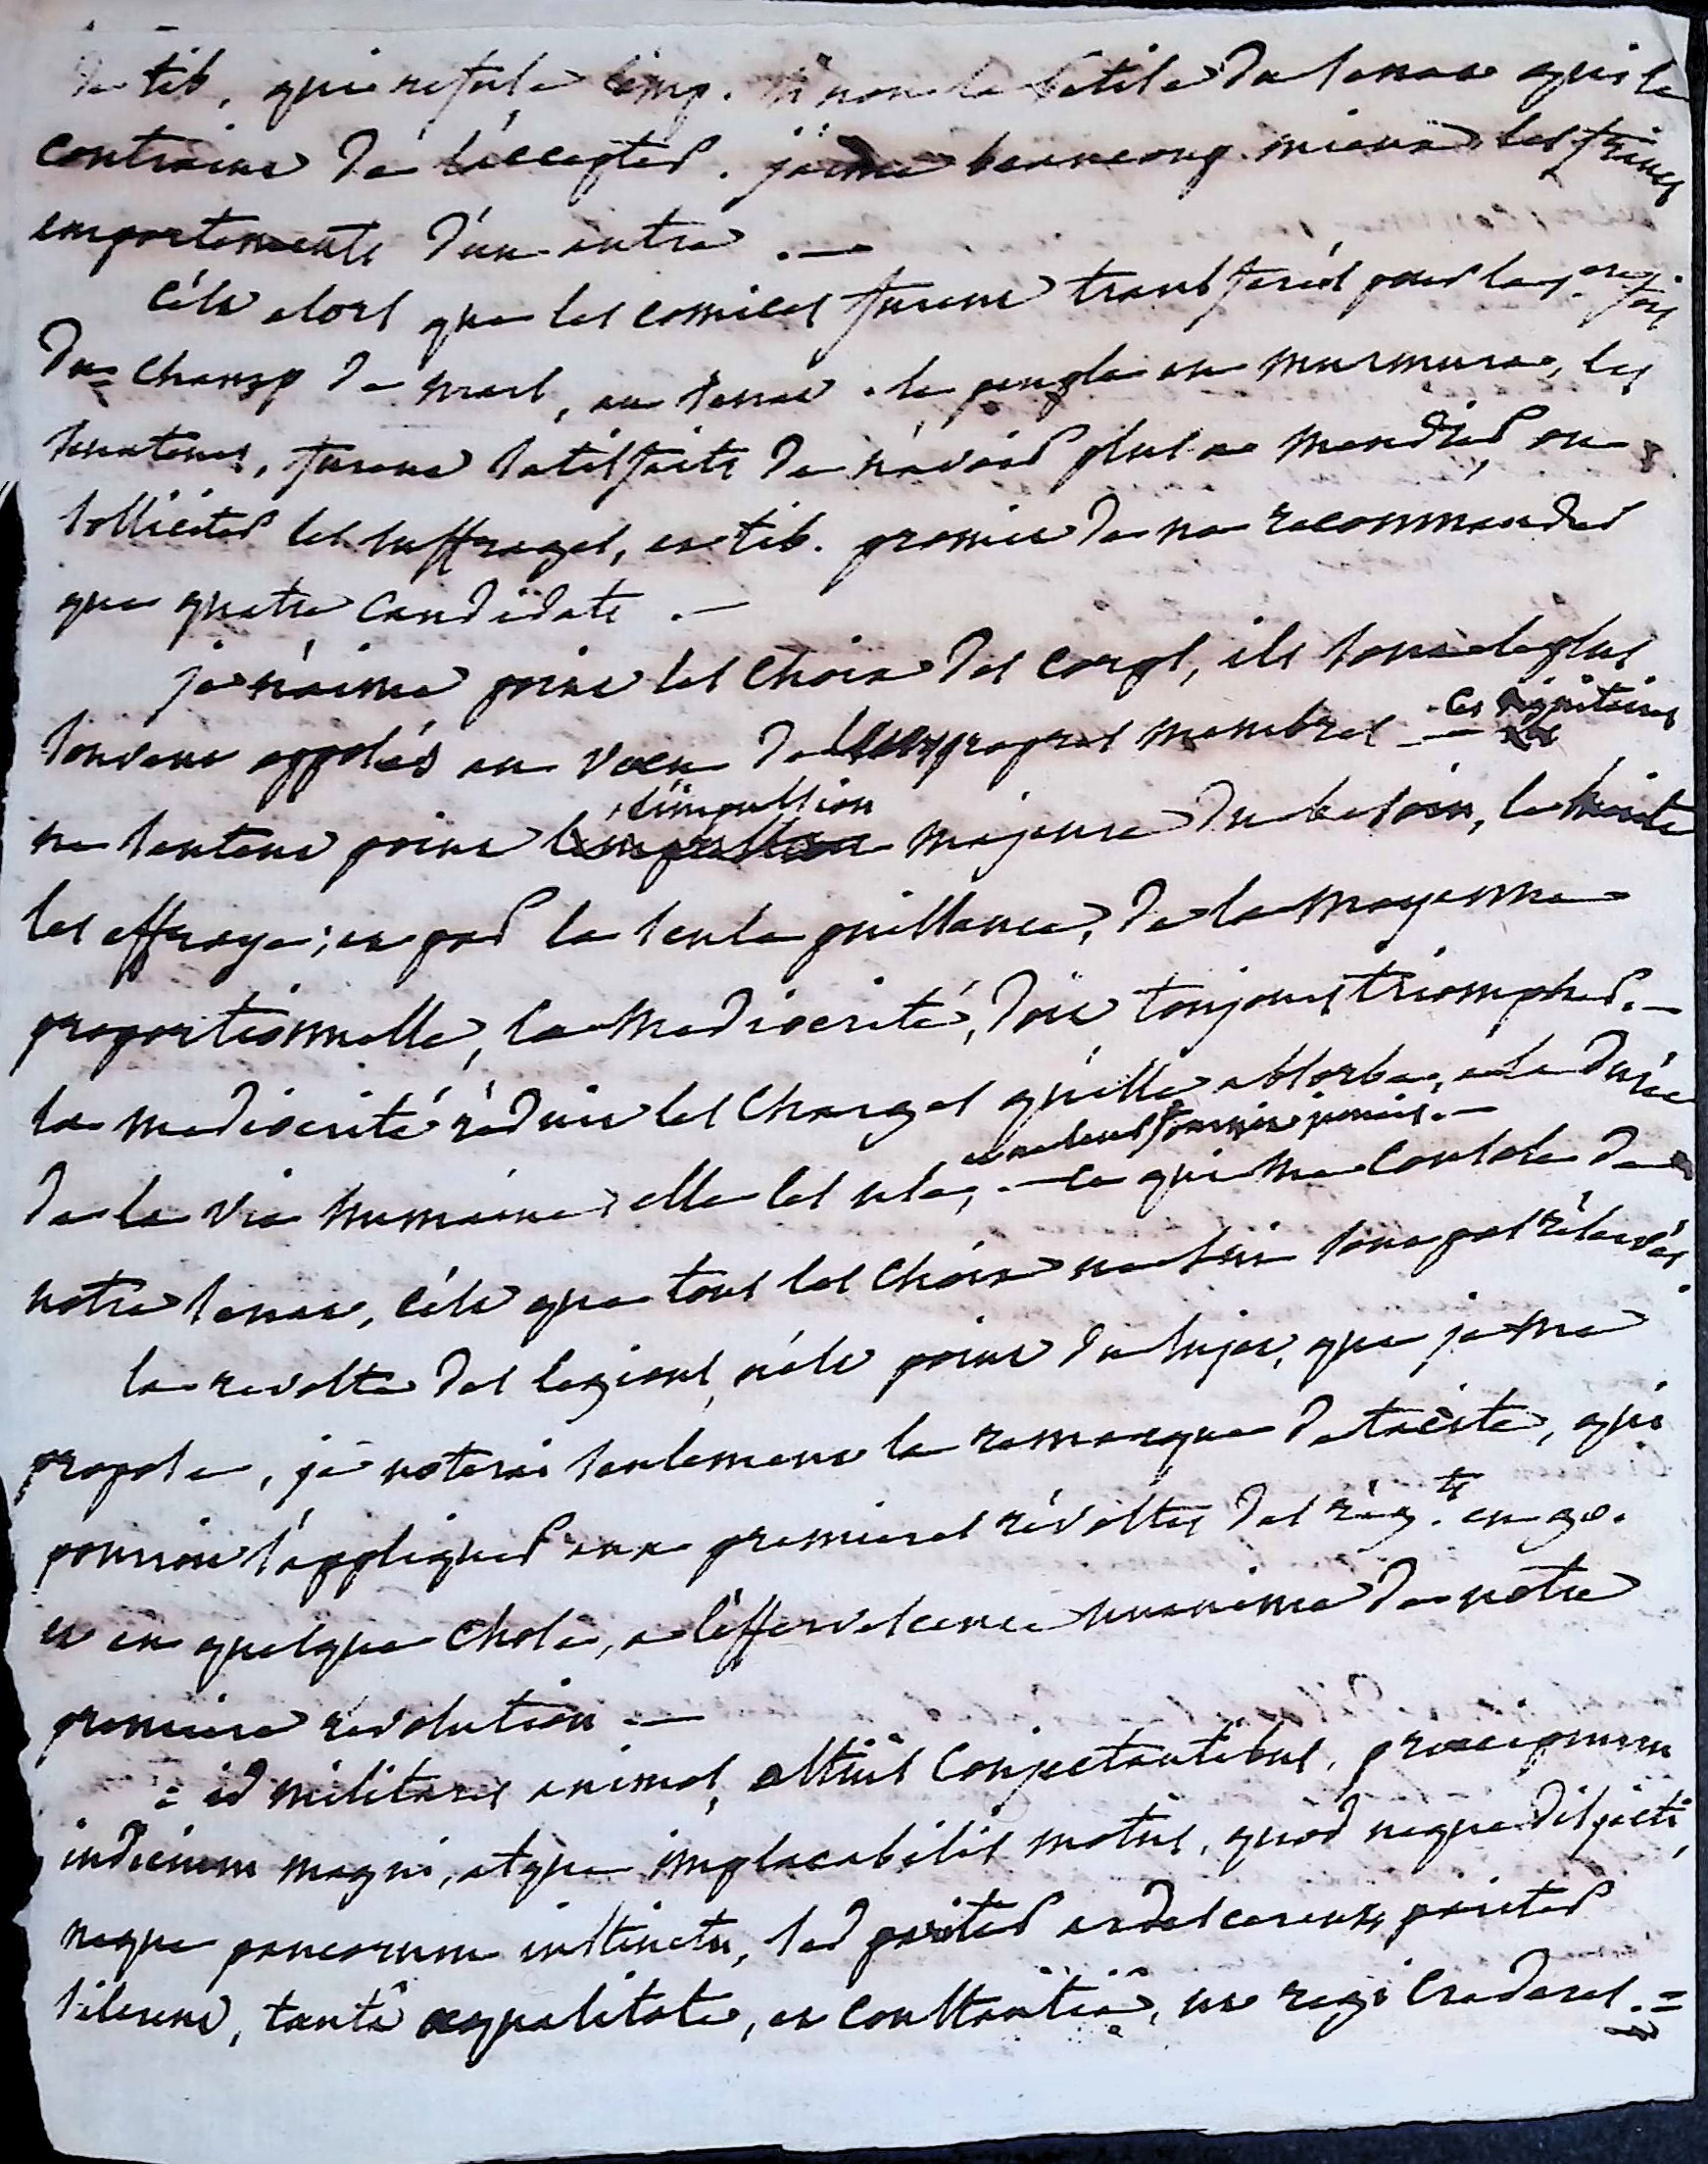 de tib. qui refuse l'emp. ni non la bétise du senat qui le
contraint de l'accepter. j'aime beaucoup mieux les francs
emportements d'un autre. —
c'est alors que les comices furent transferés pour la 1.ere fois
du champ de mars, au senat. le peuple en murmura, les
senateurs, furent satisfaits de n'avoir plus a mendier, ou
solliciter les suffrages, et tib. promit de ne recommander
que quatre candidats. —
je n'aime point les choix des corps, ils sont le plus
souvent opposés au voeu de leurs propres membres — les dignitaires
ne sentent point l'impulsion majeure du besoin, le merite
les effraye; et par la seule puissance, de la moyenne
proportionnelle, la mediocrité, doit toujours triompher. —
la mediocrité réduit les charges qu'elle absorbe, a la durée
de la vie humaine, elle les use, et ne sent jamais. — ce qui me console de
notre senat, c'est que tous les choix ne lui sont pas réservés.
la revolte des legions, n'est point du sujet, que je me
propose, je noterai seulement la remarque de tacite, qui
pourroit s'appliquer aux premieres révoltes des rég.ts en 90.
et en quelque chose, a l'effervescence unanime de notre
premiere révolution —
= id militares animos, altius conjectantibus, praecipuum
indicium magni, atque implacabilis motus, quod neque disjecti,
neque paucorum instinctu, sed pariter ardescerent, pariter
silerent, tantâ aequalitate, et constantiâ, ut regi crederes. =